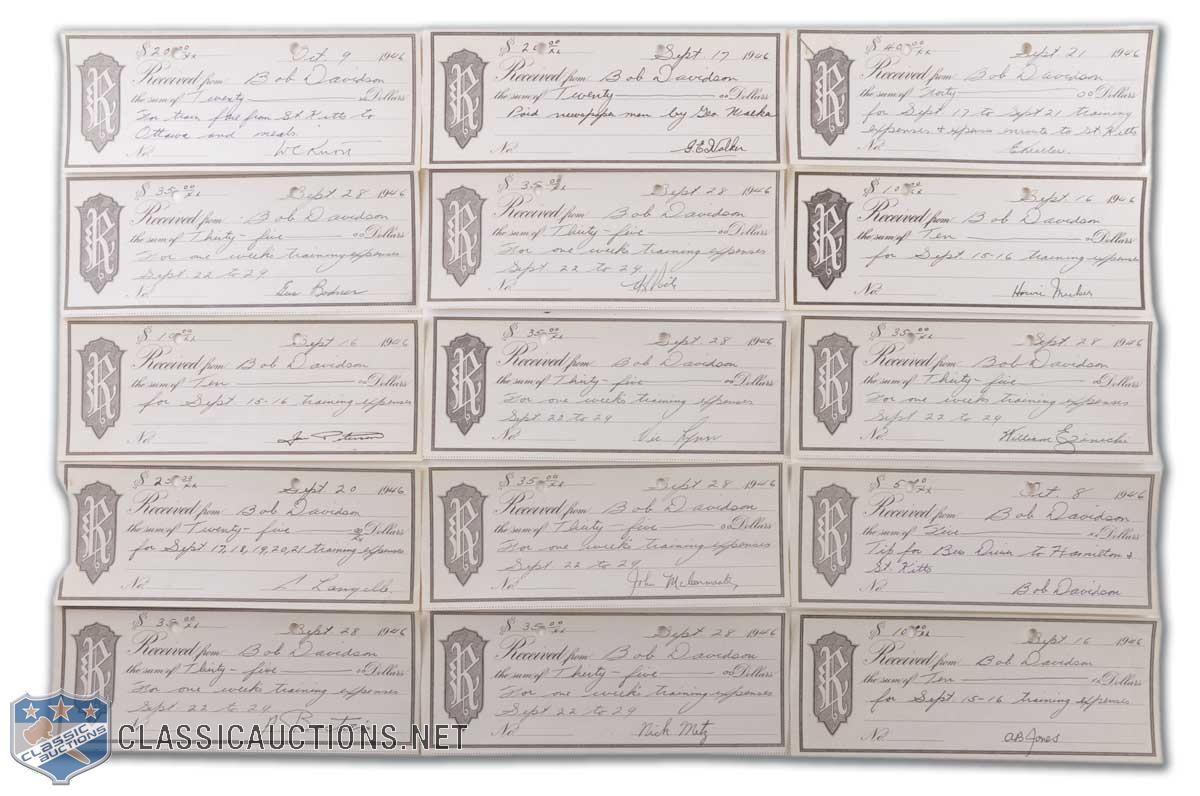 $ 20 00/xx Oct 9 1946
Received from Bob Davidson
the sum of Twenty 00 Dollars
For train fare from St. Kitts to
Ottawa and meals.
No.
R
$ 20 00/xx Sept 17 1946
Received from Bob Davidson
the sum of Twenty 00 Dollars
Paid newspaper man by Geo Walker
No. G.E. Walker
R
$ 40 00/xx Sept 21 1946
Received from Bob Davidson
the sum of Forty 00 Dollars
for Sept 17 to Sept 21 training
expenses + expenses enroute to St Kitts
No.
R
$ 35 00/xx Sept 28 1946
Received from Bob Davidson
the sum of Thirty-five 00 Dollars
For one weeks training expenses
Sept. 22 to 29
No. Gus Bodnar
R
$ 35 00/xx Sept 28 1946
Received from Bob Davidson
the sum of Thirty-five 00 Dollars
For one weeks training expenses
Sept. 22 to 29
No.
R
$ 10 00/xx Sept 16 1946
Received from Bob Davidson
the sum of Ten 00 Dollars
for Sept 15-16 training expenses
No. Howie Meeker
R
$ 10 00/xx Sept 16 1946
Received from Bob Davidson
the sum of Ten 00 Dollars
for Sept 15-16 training expenses
No.
R
$ 35 00/xx Sept. 28 1946
Received from Bob Davidson
the sum of Thirty-five 00 Dollars
For one weeks training expenses
Sept 22 to 29
No. Vic Lynn
R
$ 35 00/xx Sept. 28 1946
Received from Bob Davidson
the sum of Thirty-five Dollars
For one weeks training expenses
Sept 22 to 29
No. William Ezinicki
R
$ 25 Sept 20 1946
Received from Bob Davidson
the sum of Twenty-five Dollars
for Sept 17, 18, 19, 20, 21 training expenses
No. Langelle
R
$ 35 00/xx Sept 28 1946
Received from Bob Davidson
the sum of Thirty five 00 Dollars
For one weeks training expenses
Sept. 22 to 29
No. John
R
$ 5 00/xx Oct. 8 1946
Received from Bob Davidson
the sum of Five Dollars
Tip for Bus Driver to Hamilton &
St. Kitts
No. Bob Davidson
R
$ 35 00/xx Sept 28 1946
Received from Bob Davidson
the sum of Thirty-five 00 Dollars
For one weeks training expenses
Sept 22 to 29
R
$ 35 00/xx Sept 28 1946
Received from Bob Davidson
the sum of Thirty-five 00 Dollars
For one weeks training expenses
Sept 22 to 29
No. Nick Metz
R
$ 10 00/xx Sept 16 1946
Received from Bob Davidson
the sum of Ten Dollars
for Sept 15-16 training expenses
No. AB Jones
R
CLASSIC
AUCTIONS
CLASSICAUCTIONS.NET